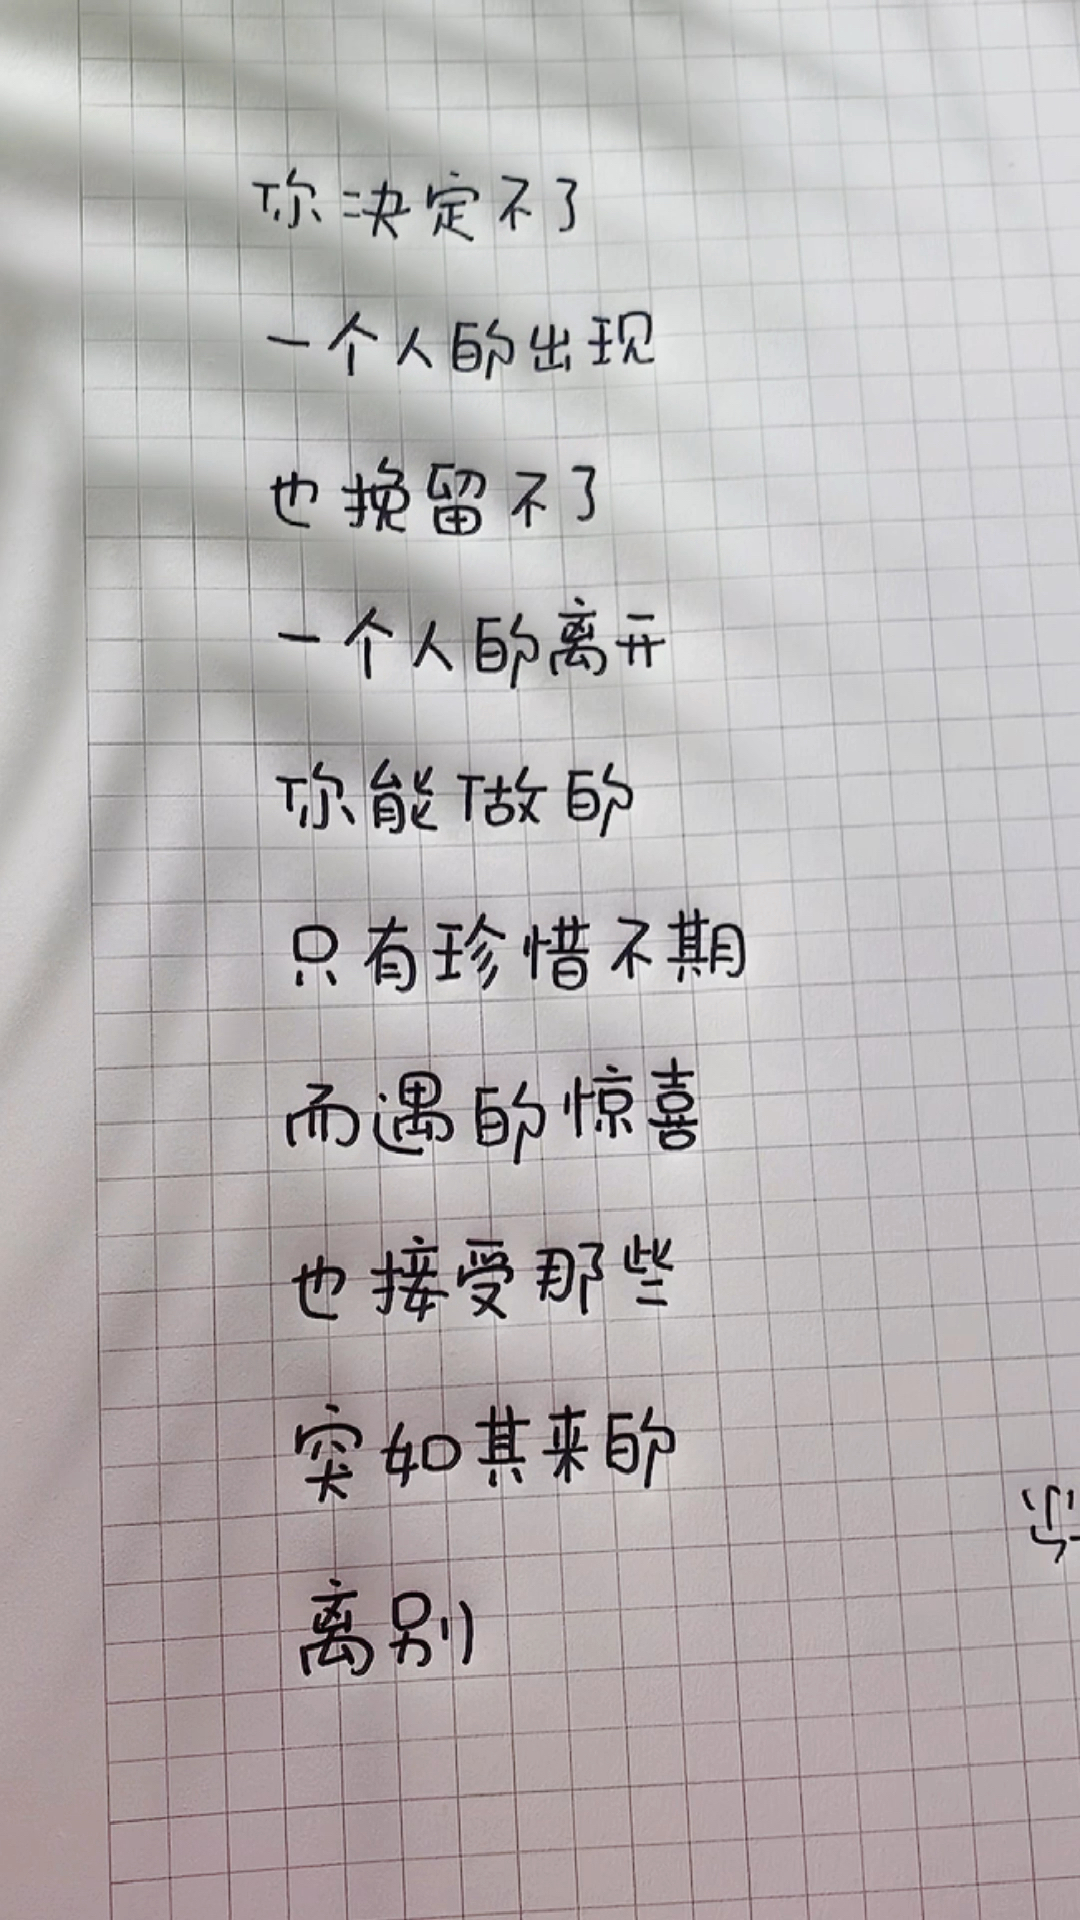 你决定不了
一个人的出现
也挽留不了
一个人的离开
你能做的
只有珍惜不期
而遇的惊喜
也接受那些
突如其来的
离别